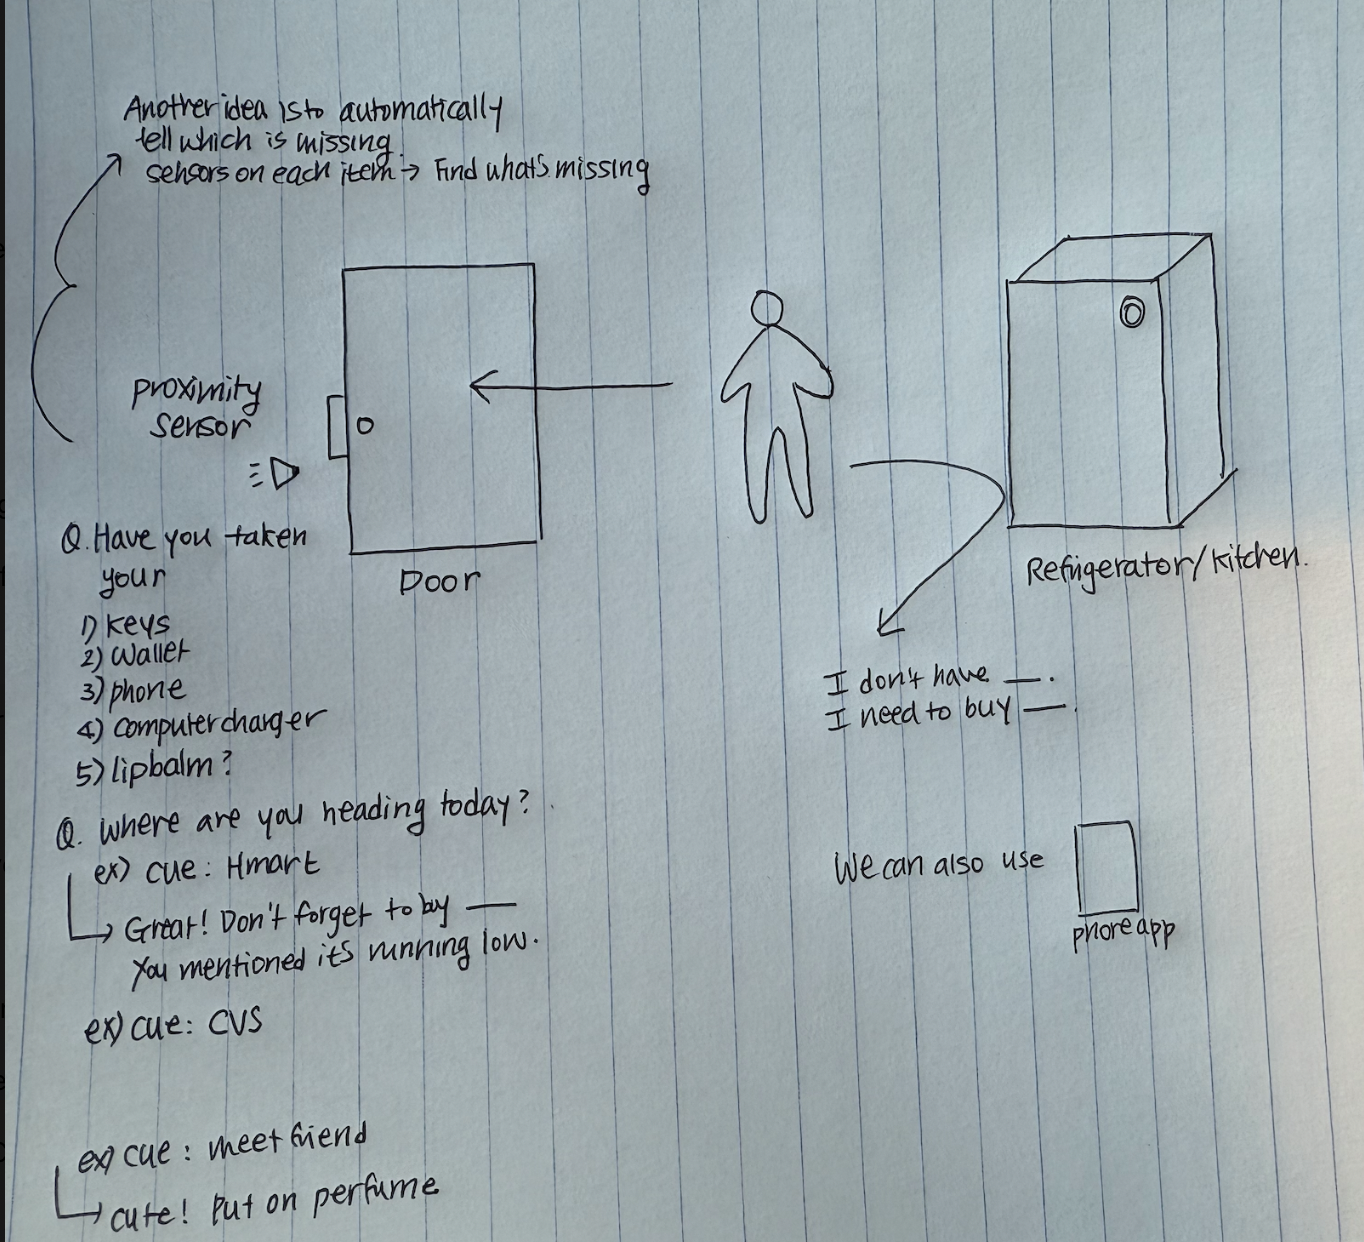 Another idea is to automatically
tell which is missing
sensors on each item → Find what's missing
proximity
sensor
Door
Refrigerator/kitchen.
Q. Have you taken
your
1) keys
2) wallet
3) phone
4) computer charger
5) lipbalm?
Q. Where are you heading today?
ex) cue: Hmart
Great! Don't forget to buy __
You mentioned it's running low.
ex) cue: CVS
ex) cue: meet friend
cute! Put on perfume
I don't have __.
I need to buy __.
We can also use
phone app